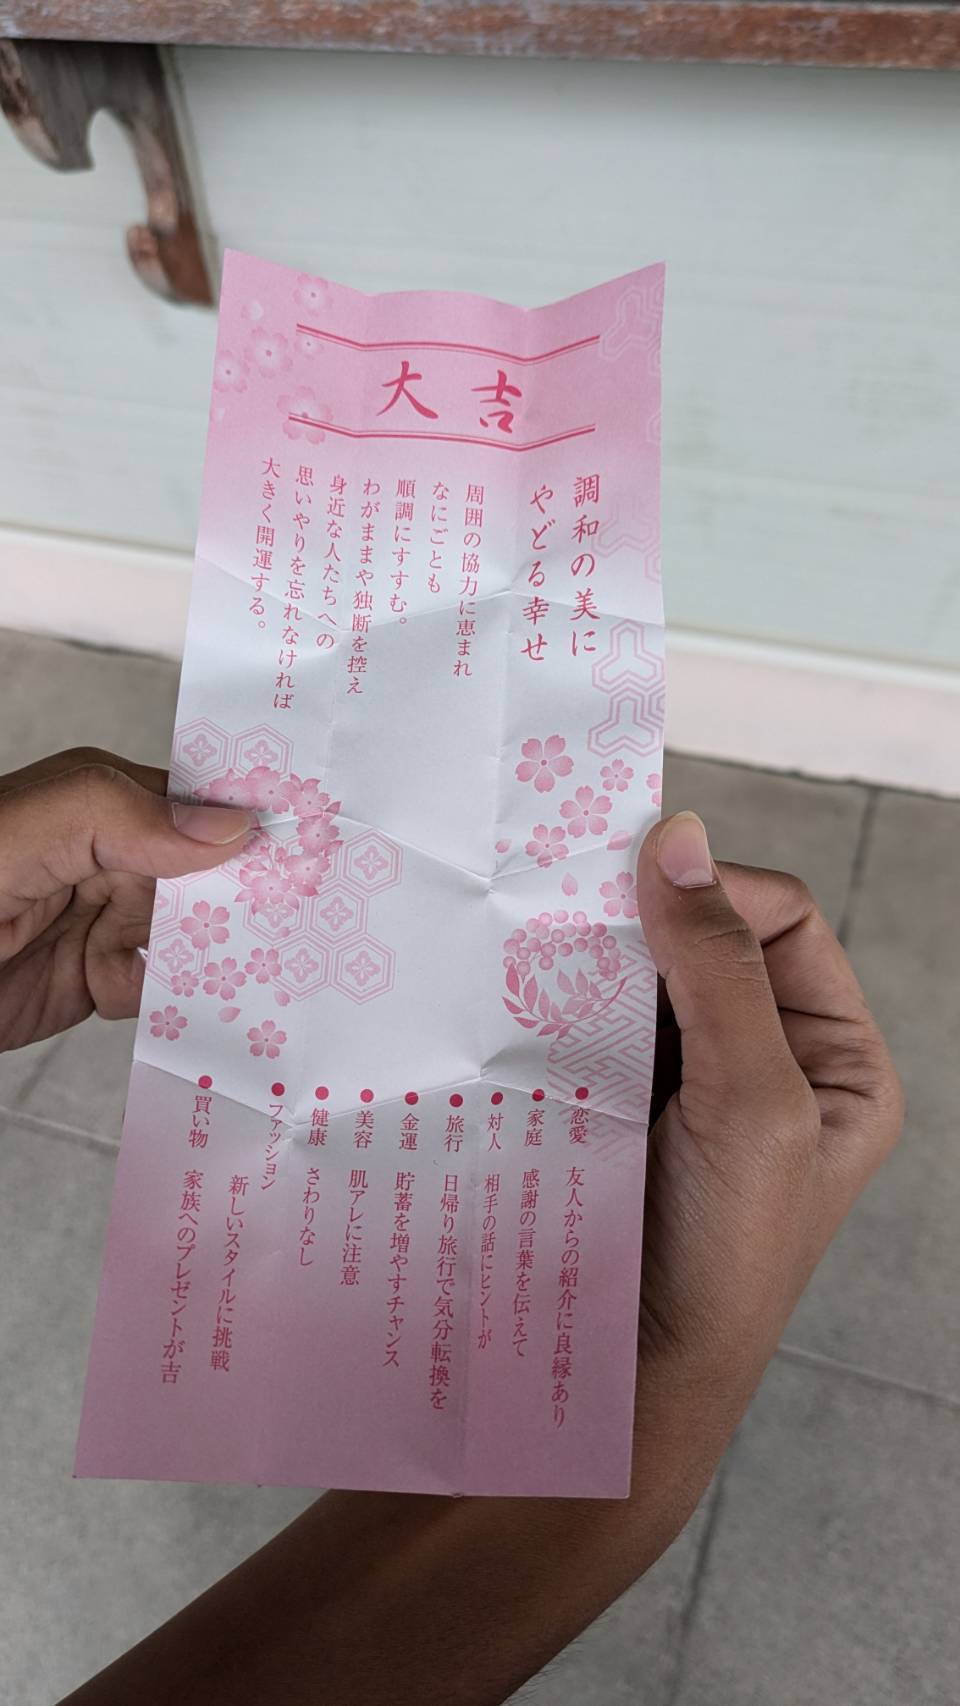 大吉
調和の美に
やどる幸せ
周囲の協力に恵まれ
なにごとも
順調にすすむ。
わがままや独断を控え
身近な人たちへの
思いやりを忘れなければ
大きく開運する。
●恋愛 友人からの紹介に良縁あり
●家庭 感謝の言葉を伝えて
●対人 相手の話にヒントが
●旅行 日帰り旅行で気分転換を
●金運 貯蓄を増やすチャンス
●美容 肌アレに注意
●健康 さわりなし
●ファッション 新しいスタイルに挑戦
●買い物 家族へのプレゼントが吉